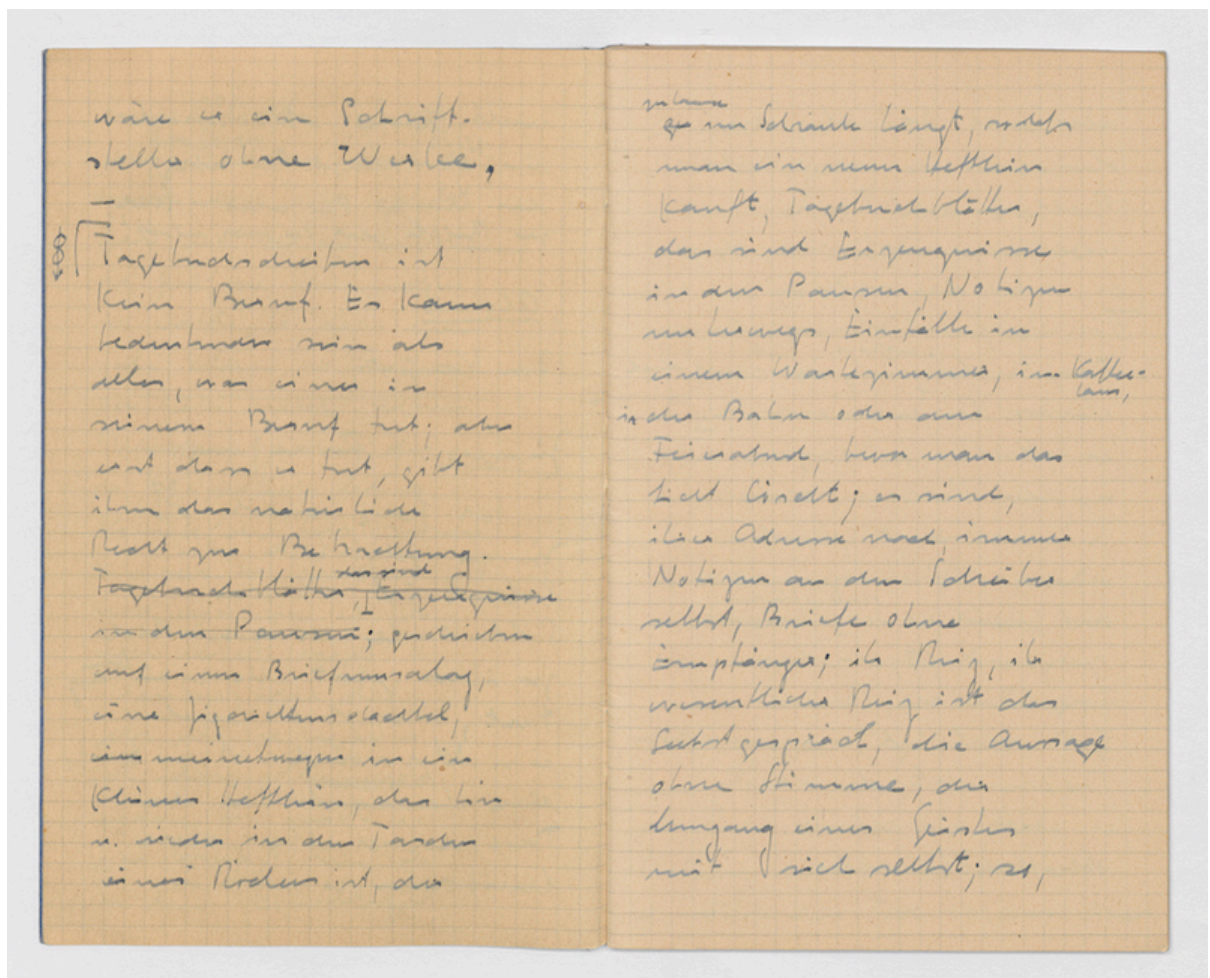 wäre es ein Schrift-
steller ohne Werke,
Tagebuchschreiben ist
kein Beruf. Es kann
bedeutender sein als
alles, was einer in
seinem Beruf tut; aber
erst dass er tut, gibt
ihm das natürliche
Recht zur Betrachtung.
das sind
Tagebuchblätter, Erzeugnisse
in den Pausen; geschrieben
auf einen Briefumschlag,
eine Zigarettenschachtel,
meinetwegen in ein
kleines Heftlein, das hin
u. wieder in den Taschen
eines Rockes ist, der
zuhause
im Schranke hängt, sodass
man ein neues Heftlein
kauft, Tagebuchblätter,
das sind Erzeugnisse
in den Pausen, Notizen
unterwegs, Einfälle in
einem Wartezimmer, im Kaffee-
haus,
in der Bahn oder am
Feierabend, bevor man das
Licht löscht; es sind,
ihrer Adresse nach, immer
Notizen an den Schreiber
selbst, Briefe ohne
Empfänger; ihr Reiz, ihr
wesentlicher Reiz ist das
Selbstgespräch, die Aussage
ohne Stimme, der
Umgang eines Geistes
mit sich selbst; so,